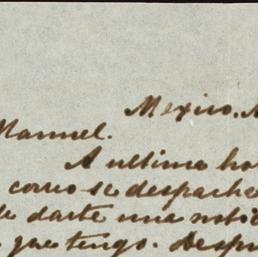 Mexico.
Manuel.
A ultima ho
como se despache
de darte una noti
que tengo. Despu